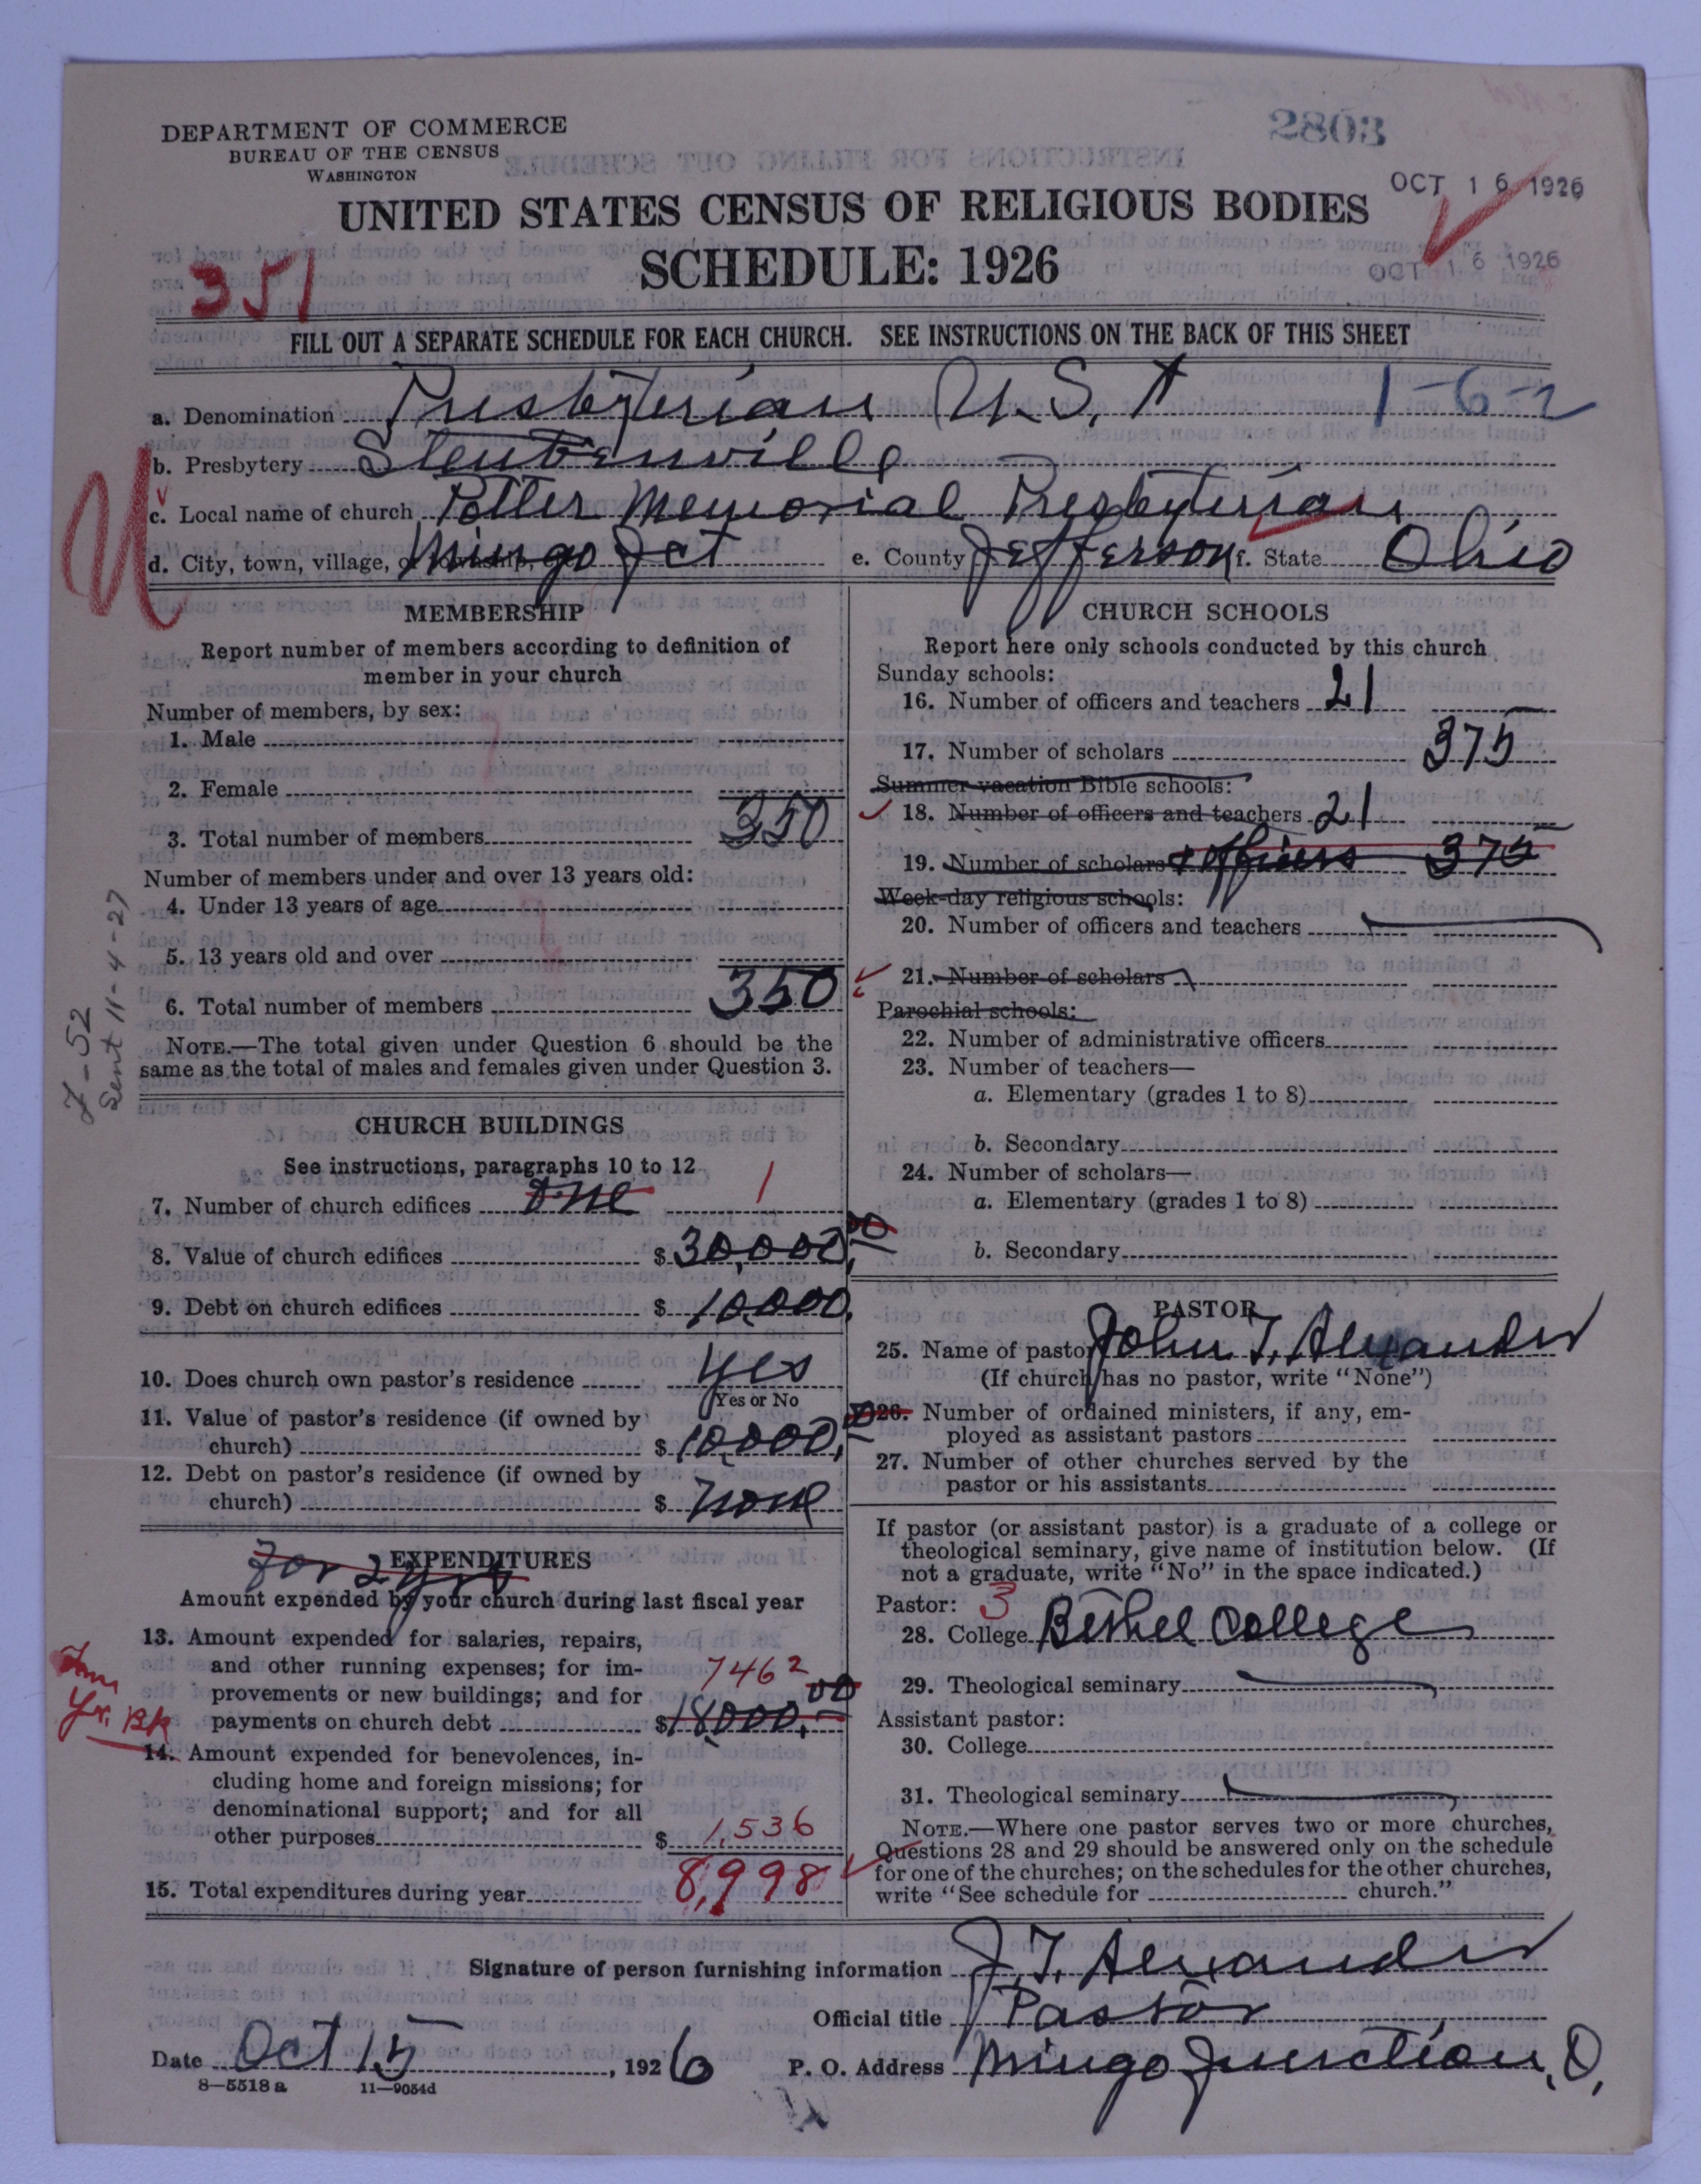 DEPARTMENT OF COMMERCE
BUREAU OF THE CENSUS
WASHINGTON
2803
OCT 16 1926
UNITED STATES CENSUS OF RELIGIOUS BODIES
SCHEDULE: 1926
OCT 16 1926
351
FILL OUT A SEPARATE SCHEDULE FOR EACH CHURCH. SEE INSTRUCTIONS ON THE BACK OF THIS SHEET
a. Denomination Presbyterian U.S.A 1-6-2
b. Presbytery Steubenville
c. Local name of church Potter Memorial Presbyterian
d. City, town, village, or township, etc. Mingo Jct e. County Jefferson f. State Ohio
MEMBERSHIP
Report number of members according to definition of
member in your church
Number of members, by sex:
1. Male
2. Female
3. Total number of members 350
Number of members under and over 13 years old:
4. Under 13 years of age
5. 13 years old and over
6. Total number of members 350
NOTE.—The total given under Question 6 should be the
same as the total of males and females given under Question 3.
J-52
Sent 11-4-27
CHURCH BUILDINGS
See instructions, paragraphs 10 to 12
7. Number of church edifices one 1
8. Value of church edifices $ 30,000.00
9. Debt on church edifices $ 10,000.
10. Does church own pastor's residence yes
Yes or No
11. Value of pastor's residence (if owned by
church) $ 10,000.00
12. Debt on pastor's residence (if owned by
church) $ none
For 2 yrs
EXPENDITURES
Amount expended by your church during last fiscal year
13. Amount expended for salaries, repairs,
and other running expenses; for im-
provements or new buildings; and for
payments on church debt $ 18,000.00 7462
Yr. Bk
14. Amount expended for benevolences, in-
cluding home and foreign missions; for
denominational support; and for all
other purposes $ 1,536
15. Total expenditures during year 8,998
CHURCH SCHOOLS
Report here only schools conducted by this church
Sunday schools:
16. Number of officers and teachers 21
17. Number of scholars 375
Summer vacation Bible schools:
18. Number of officers and teachers 21
19. Number of scholars + officers 375
Week-day religious schools:
20. Number of officers and teachers
21. Number of scholars
Parochial schools:
22. Number of administrative officers
23. Number of teachers—
a. Elementary (grades 1 to 8)
b. Secondary
24. Number of scholars—
a. Elementary (grades 1 to 8)
b. Secondary
PASTOR
25. Name of pastor John T. Alexander
(If church has no pastor, write "None")
26. Number of ordained ministers, if any, em-
ployed as assistant pastors
27. Number of other churches served by the
pastor or his assistants
If pastor (or assistant pastor) is a graduate of a college or
theological seminary, give name of institution below. (If
not a graduate, write "No" in the space indicated.)
Pastor: 3
28. College Bethel College
29. Theological seminary
Assistant pastor:
30. College
31. Theological seminary
NOTE.—Where one pastor serves two or more churches,
Questions 28 and 29 should be answered only on the schedule
for one of the churches; on the schedules for the other churches,
write "See schedule for church."
Signature of person furnishing information J. T. Alexander
Official title Pastor
Date Oct 15, 1926 P. O. Address Mingo Junction, O.
8—5518a 11—9054d